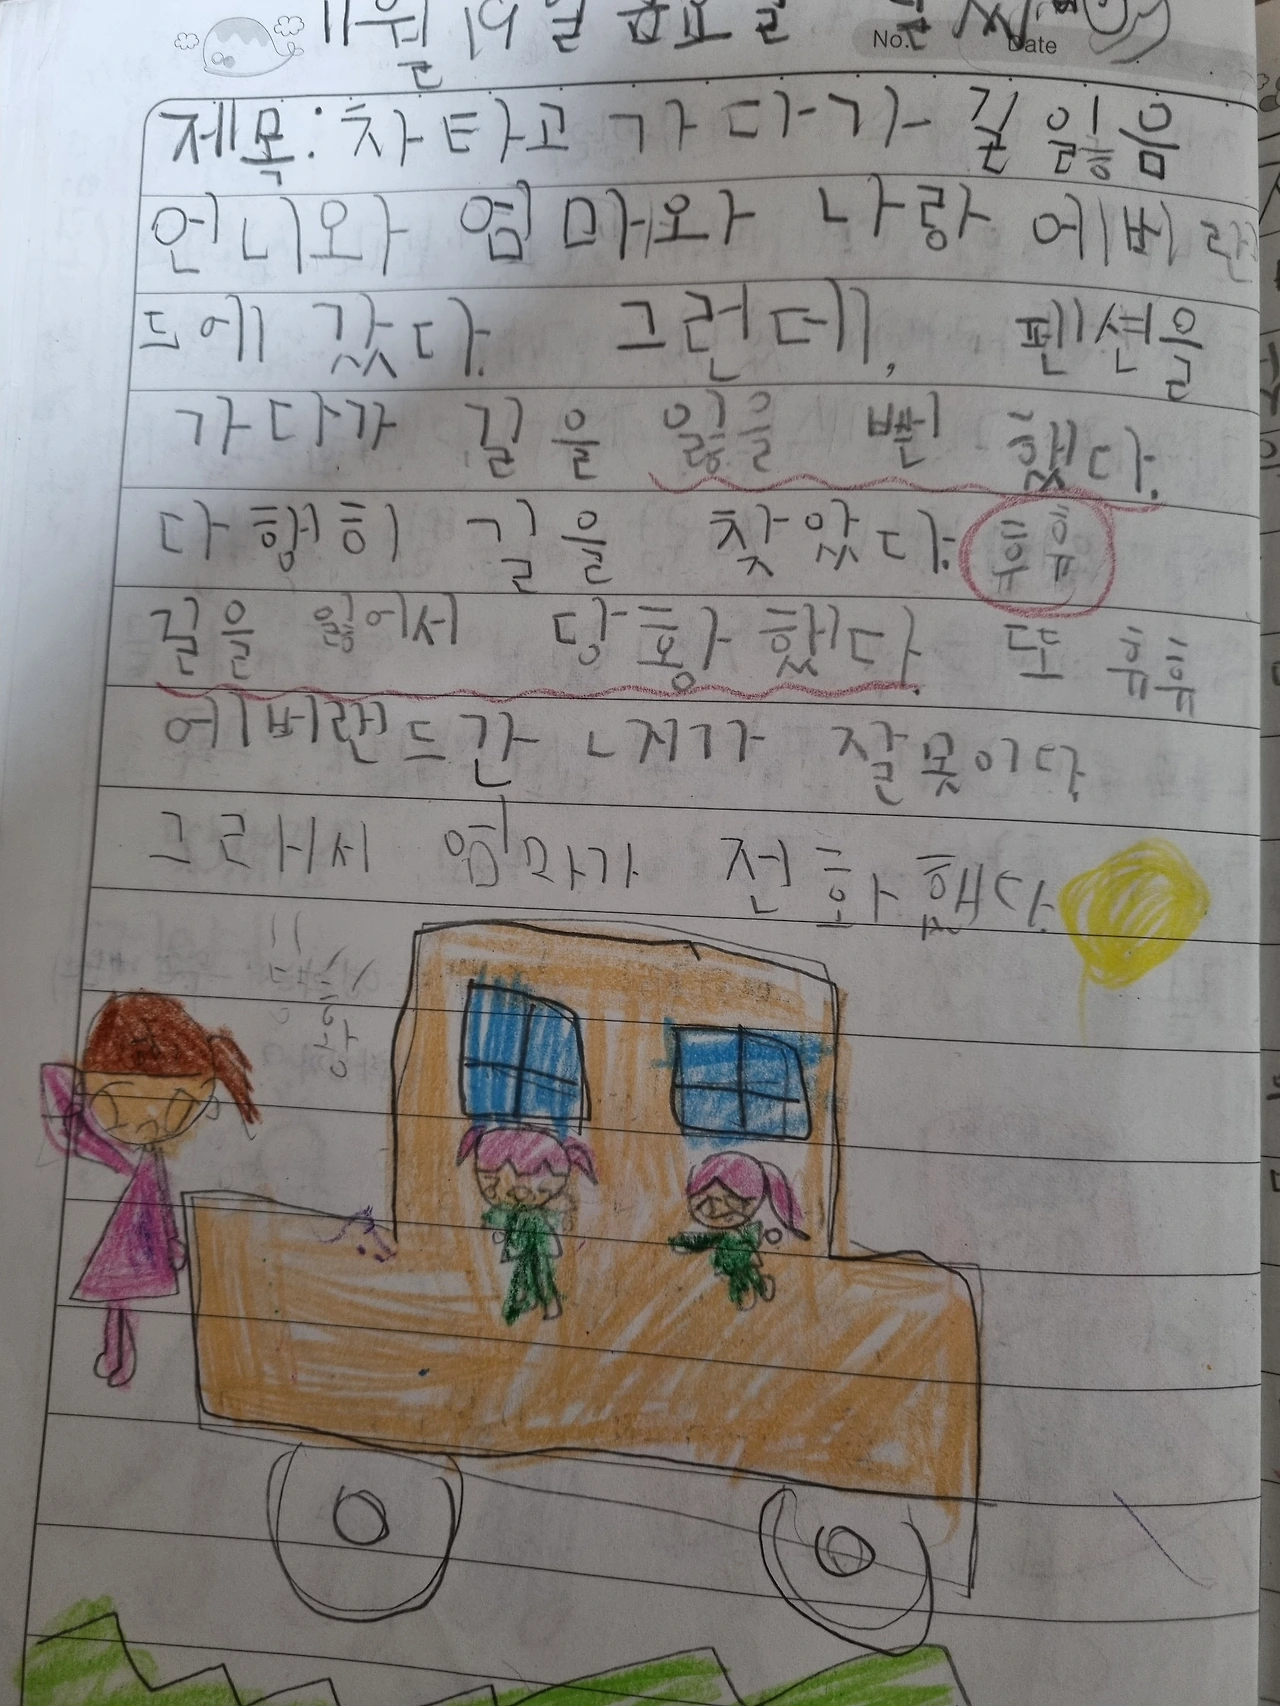 11월 19일 금요일 날씨
No. Date
제목: 차타고 가다가 길 잃음
언니와 엄마와 나랑 에버랜
드에 갔다. 그런데, 펜션을
가다가 길을 잃을 뻔 했다.
다행히 길을 찾았다. 휴휴
길을 잃어서 당황했다. 또 휴휴
에버랜드간 너지가 잘못이다.
그래서 엄마가 전화했다.